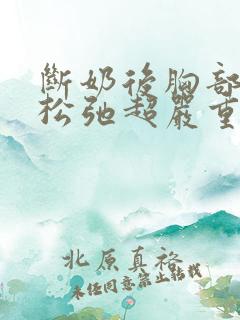 斷奶後胸部
松弛超嚴重
北原真裕
未经同意禁止转载